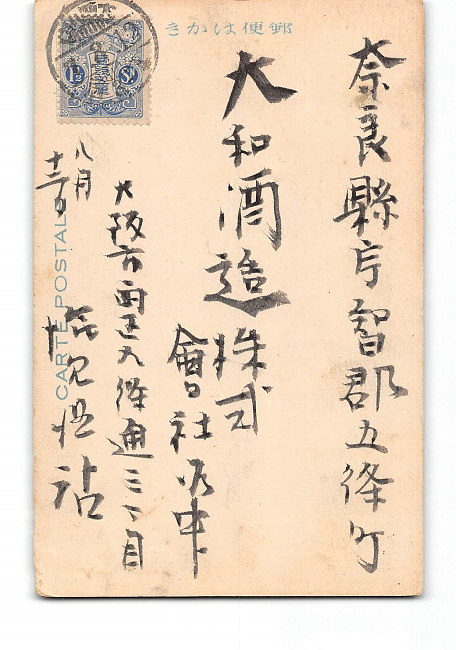 郵便はかき
奈良縣宇智郡五條町
大和酒造株式
會社御中
大阪市西区九條通三丁目
八月
十三日
1½ Sn
CARTE POSTALE